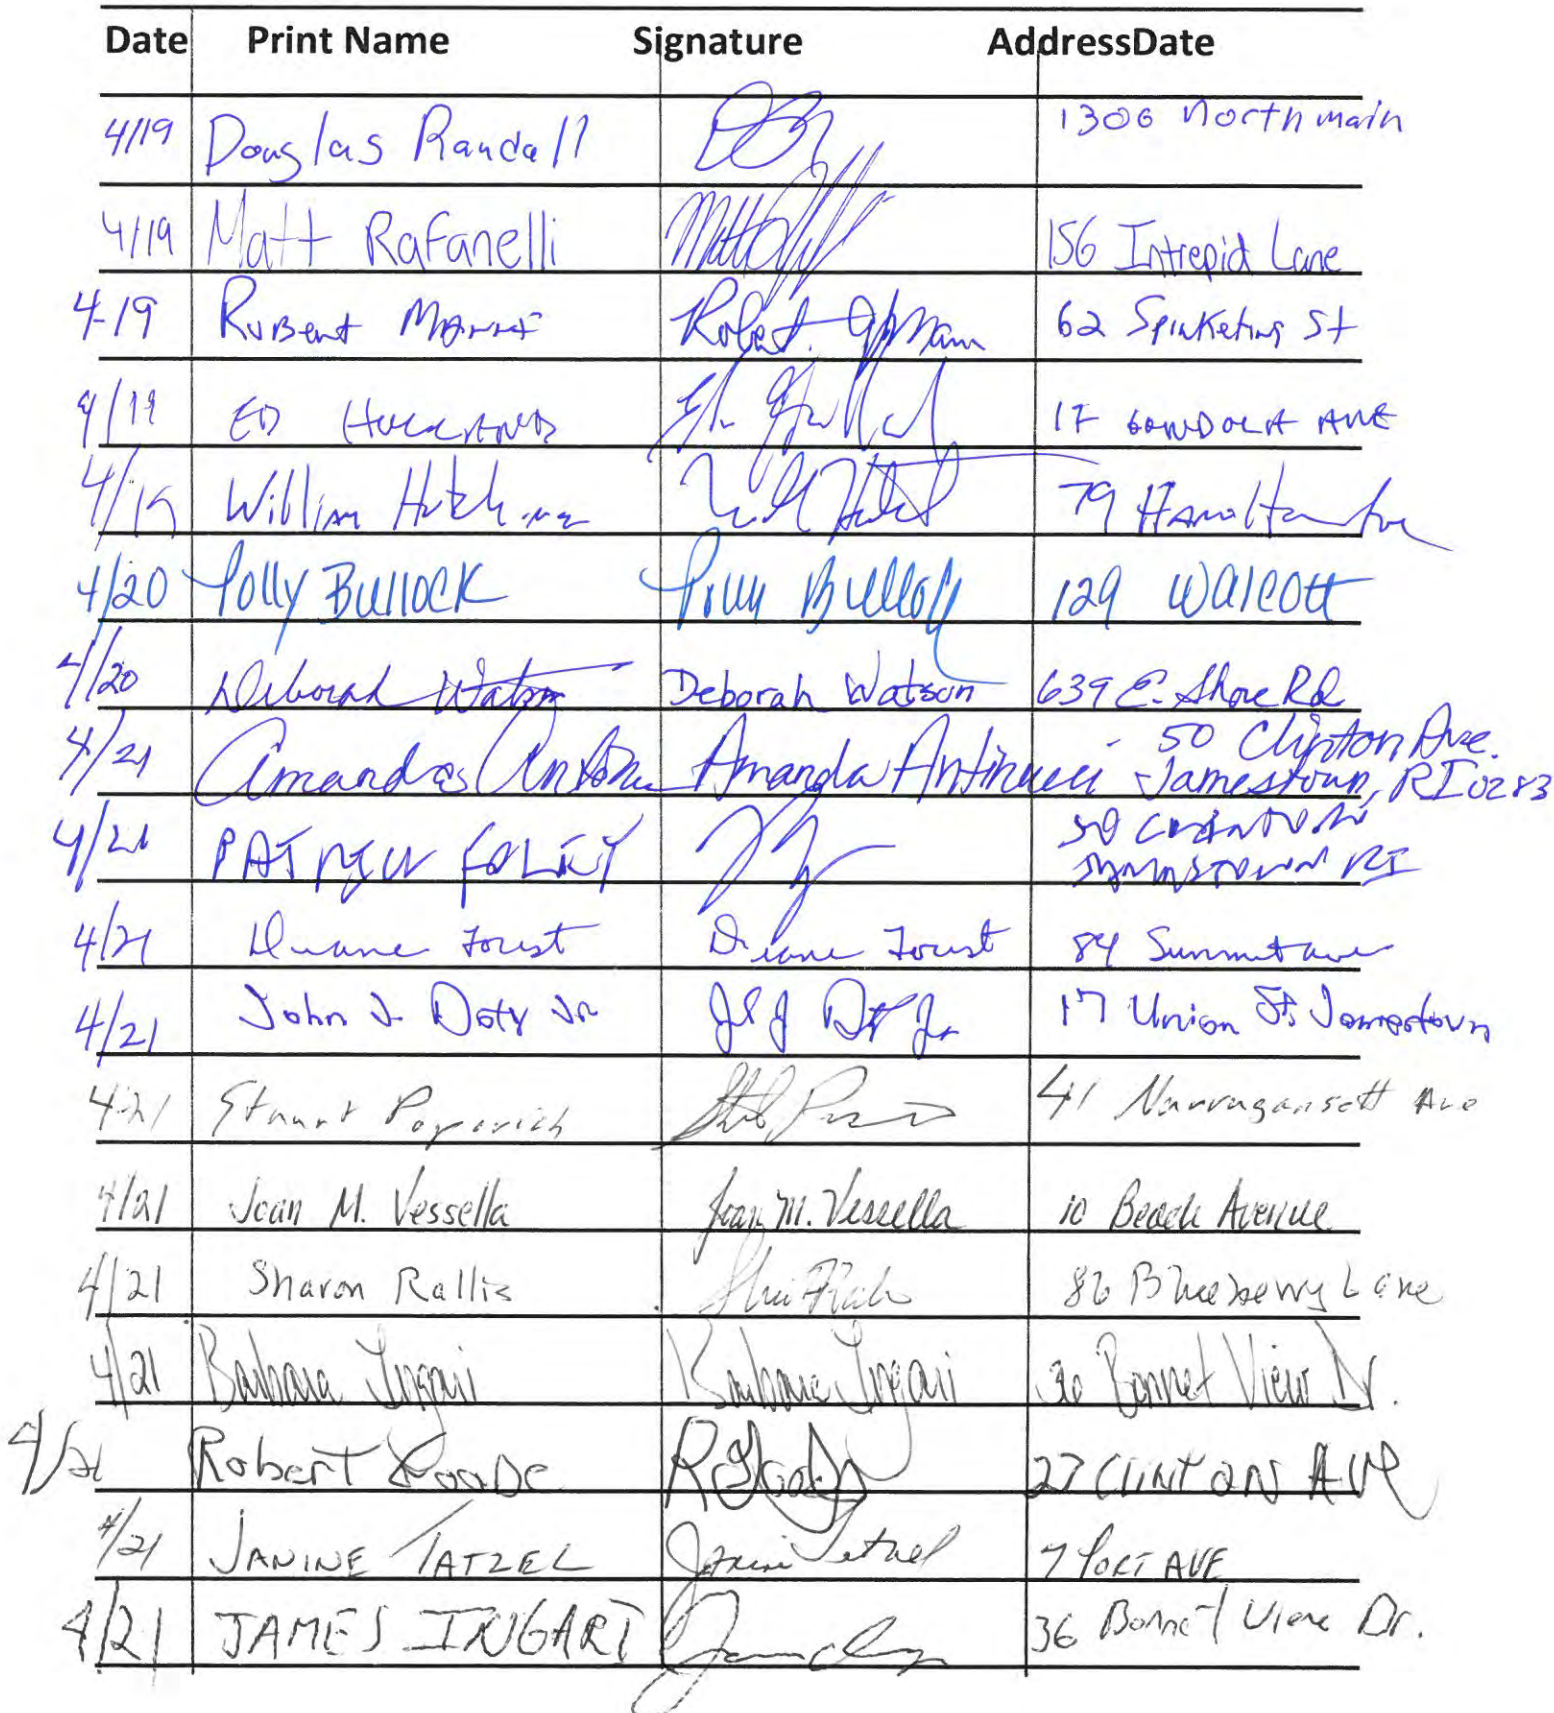 Date Print Name Signature AddressDate
4/19 Douglas Randall 1306 North main
4/19 Matt Rafanelli 156 Intrepid Lane
4-19 Robert 62 St
4/19 ED 17 GONDOLA AVE
4/19 William 79 Hamilton Ave
4/20 Polly Bullock Polly Bullock 129 Walcott
4/20 Deborah Watson Deborah Watson 639 E. Shore Rd
4/21 Amanda Amanda Antinucci 50 Clinton Ave.
Jamestown, RI 0283
4/21 FOLEY 50
RI
4/21 84 Summit ave
4/21 John J. Doty Jr 17 Union St, Jamestown
4-21 Stuart Popovich 41 Narragansett Ave
4/21 Joan M. Vessella Joan M. Vessella 10 Beach Avenue
4/21 Sharon Rallis 86 Blueberry Lane
4/21 Barbara Ingari Barbara Ingari 36 Bonnet View Dr.
4/21 Robert 27 CLINTON AVE
4/21 JANINE TATZEL 7 PORT AVE
4/21 JAMES INGARI 36 Bonnet View Dr.